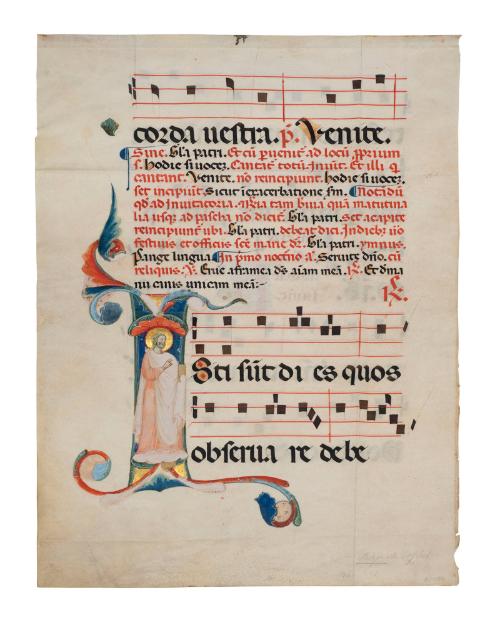 corda uestra. p̄. Venite.
Sine. Gl'a patri. Et cū ꝑuenit' ad locū ꝓprium
s. hodie si uocez. Cantat' totū. Inuit. Et illi q
cantant. Venite. nō reincipiunt. hodie si uocez.
set incipiūt. Sicut i exacerbatione. fm. Notādū
qd ad inuitatoria. Gl'a patri. set accipite
reincipiunt ubi. Gl'a patri. debeat dici. In dieb; nō
festiuis et officiis scē marie dr̄. Gl'a patri. ymnus.
Pange lingua. In p̄mo noctno a. Seruite dn̄o. cū
reliquis. V. Erue a framea ds̄ aīam meā. R. Et d'ma
nu canis unicam meā.
R.
Isti sūt di es quos
obserua re debe